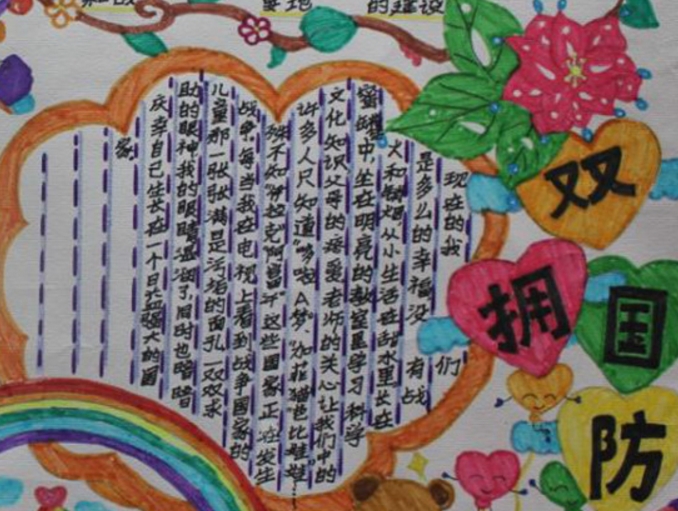 要地
的建设
双
拥
国
防
现在的我们
是多么的幸福没有战
火和硝烟从小生活在甜水里长在
蜜罐中坐在明亮的教室里学习科学
文化知识父母的疼爱老师的关心让我们中的
许多人只知道“哆啦A梦”“加菲猫”芭比娃娃”
殊不知 克阿富汗 这些国家正在发生
战争每当我在电视上看到战争国家的
儿童那一张张满是污垢的面孔一双双求
助的眼神我的眼睛湿润了同时也暗暗
庆幸自己生长在一个日益强大的国
家